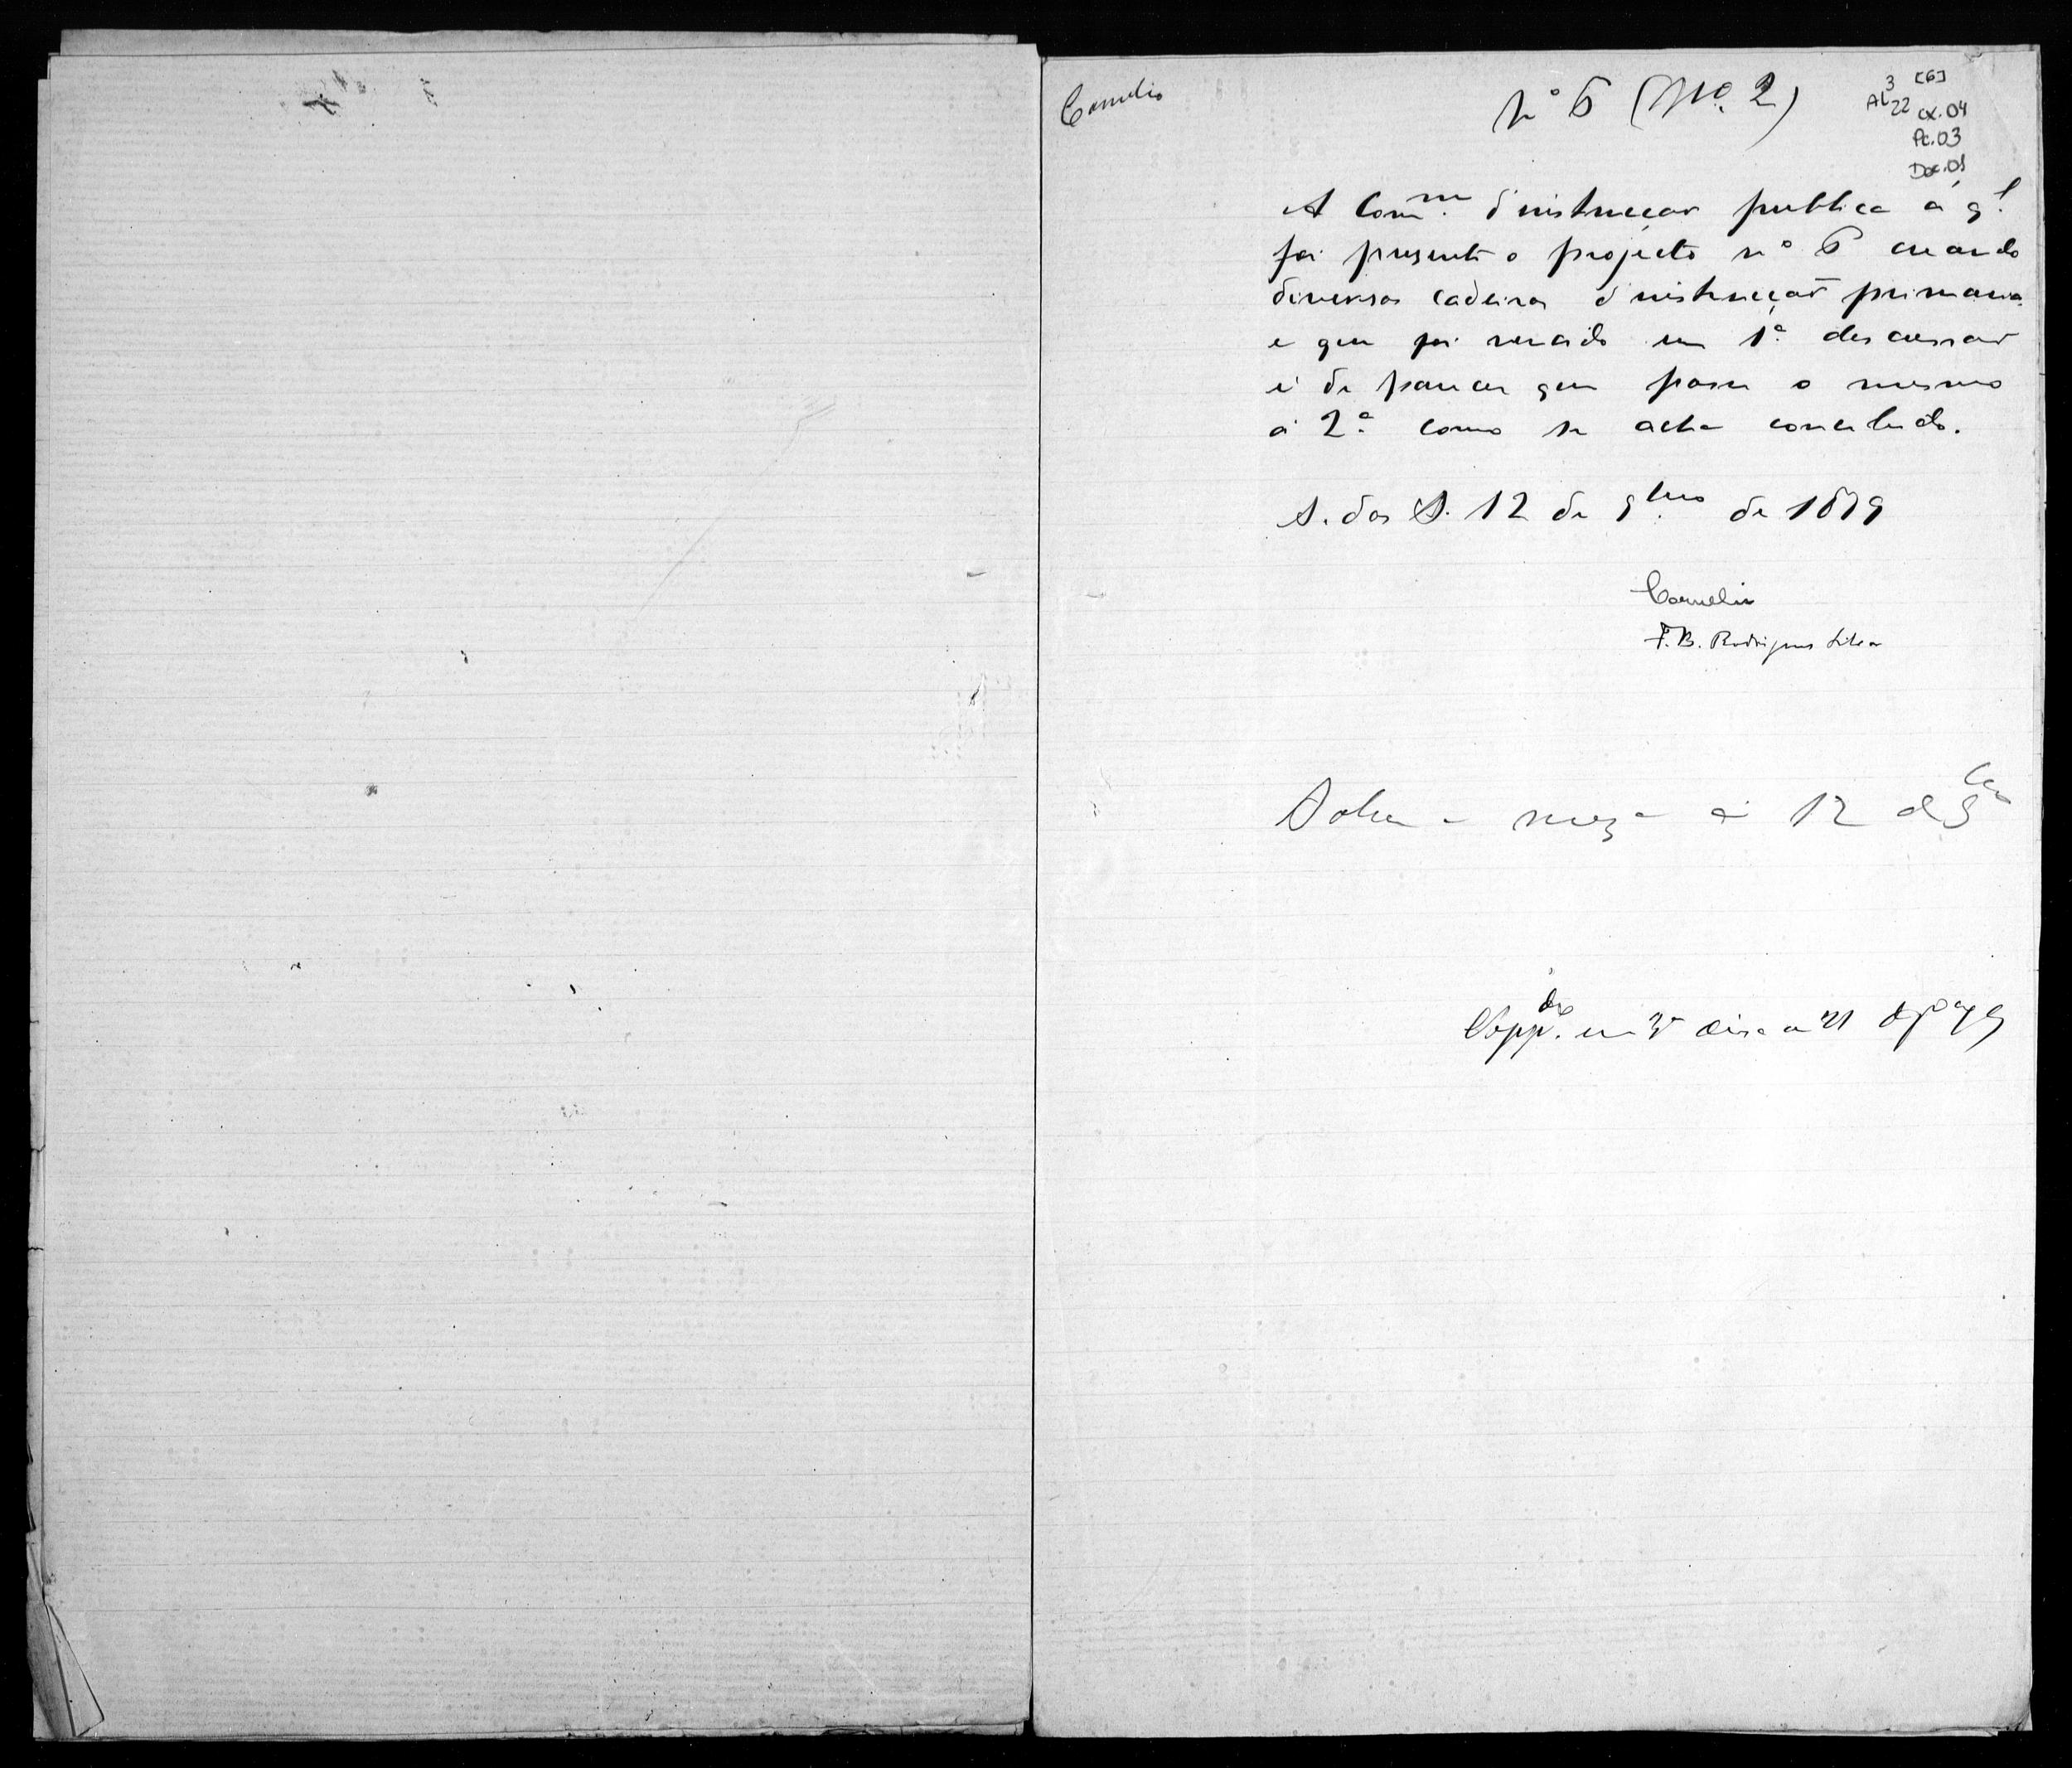 Cornelio
nº 6 (Nº. 2)
3 [6]
AL 22 cx.04
Pc.03
Doc.01
A Comm. d'instrucçao publica á q.l
foi presente o projecto nº 6 creando
diversas cadeiras d'instrucçaõ primaria
e que foi vencido em 1ª discussaõ
é de parecer que passe o mesmo
á 2ª como se acha concebido.
S. das S. 12 de 9bro de 1879
Cornelio
F. B. Rodrigues Silva
Sobre a meza á 12 de 9bro
em 21